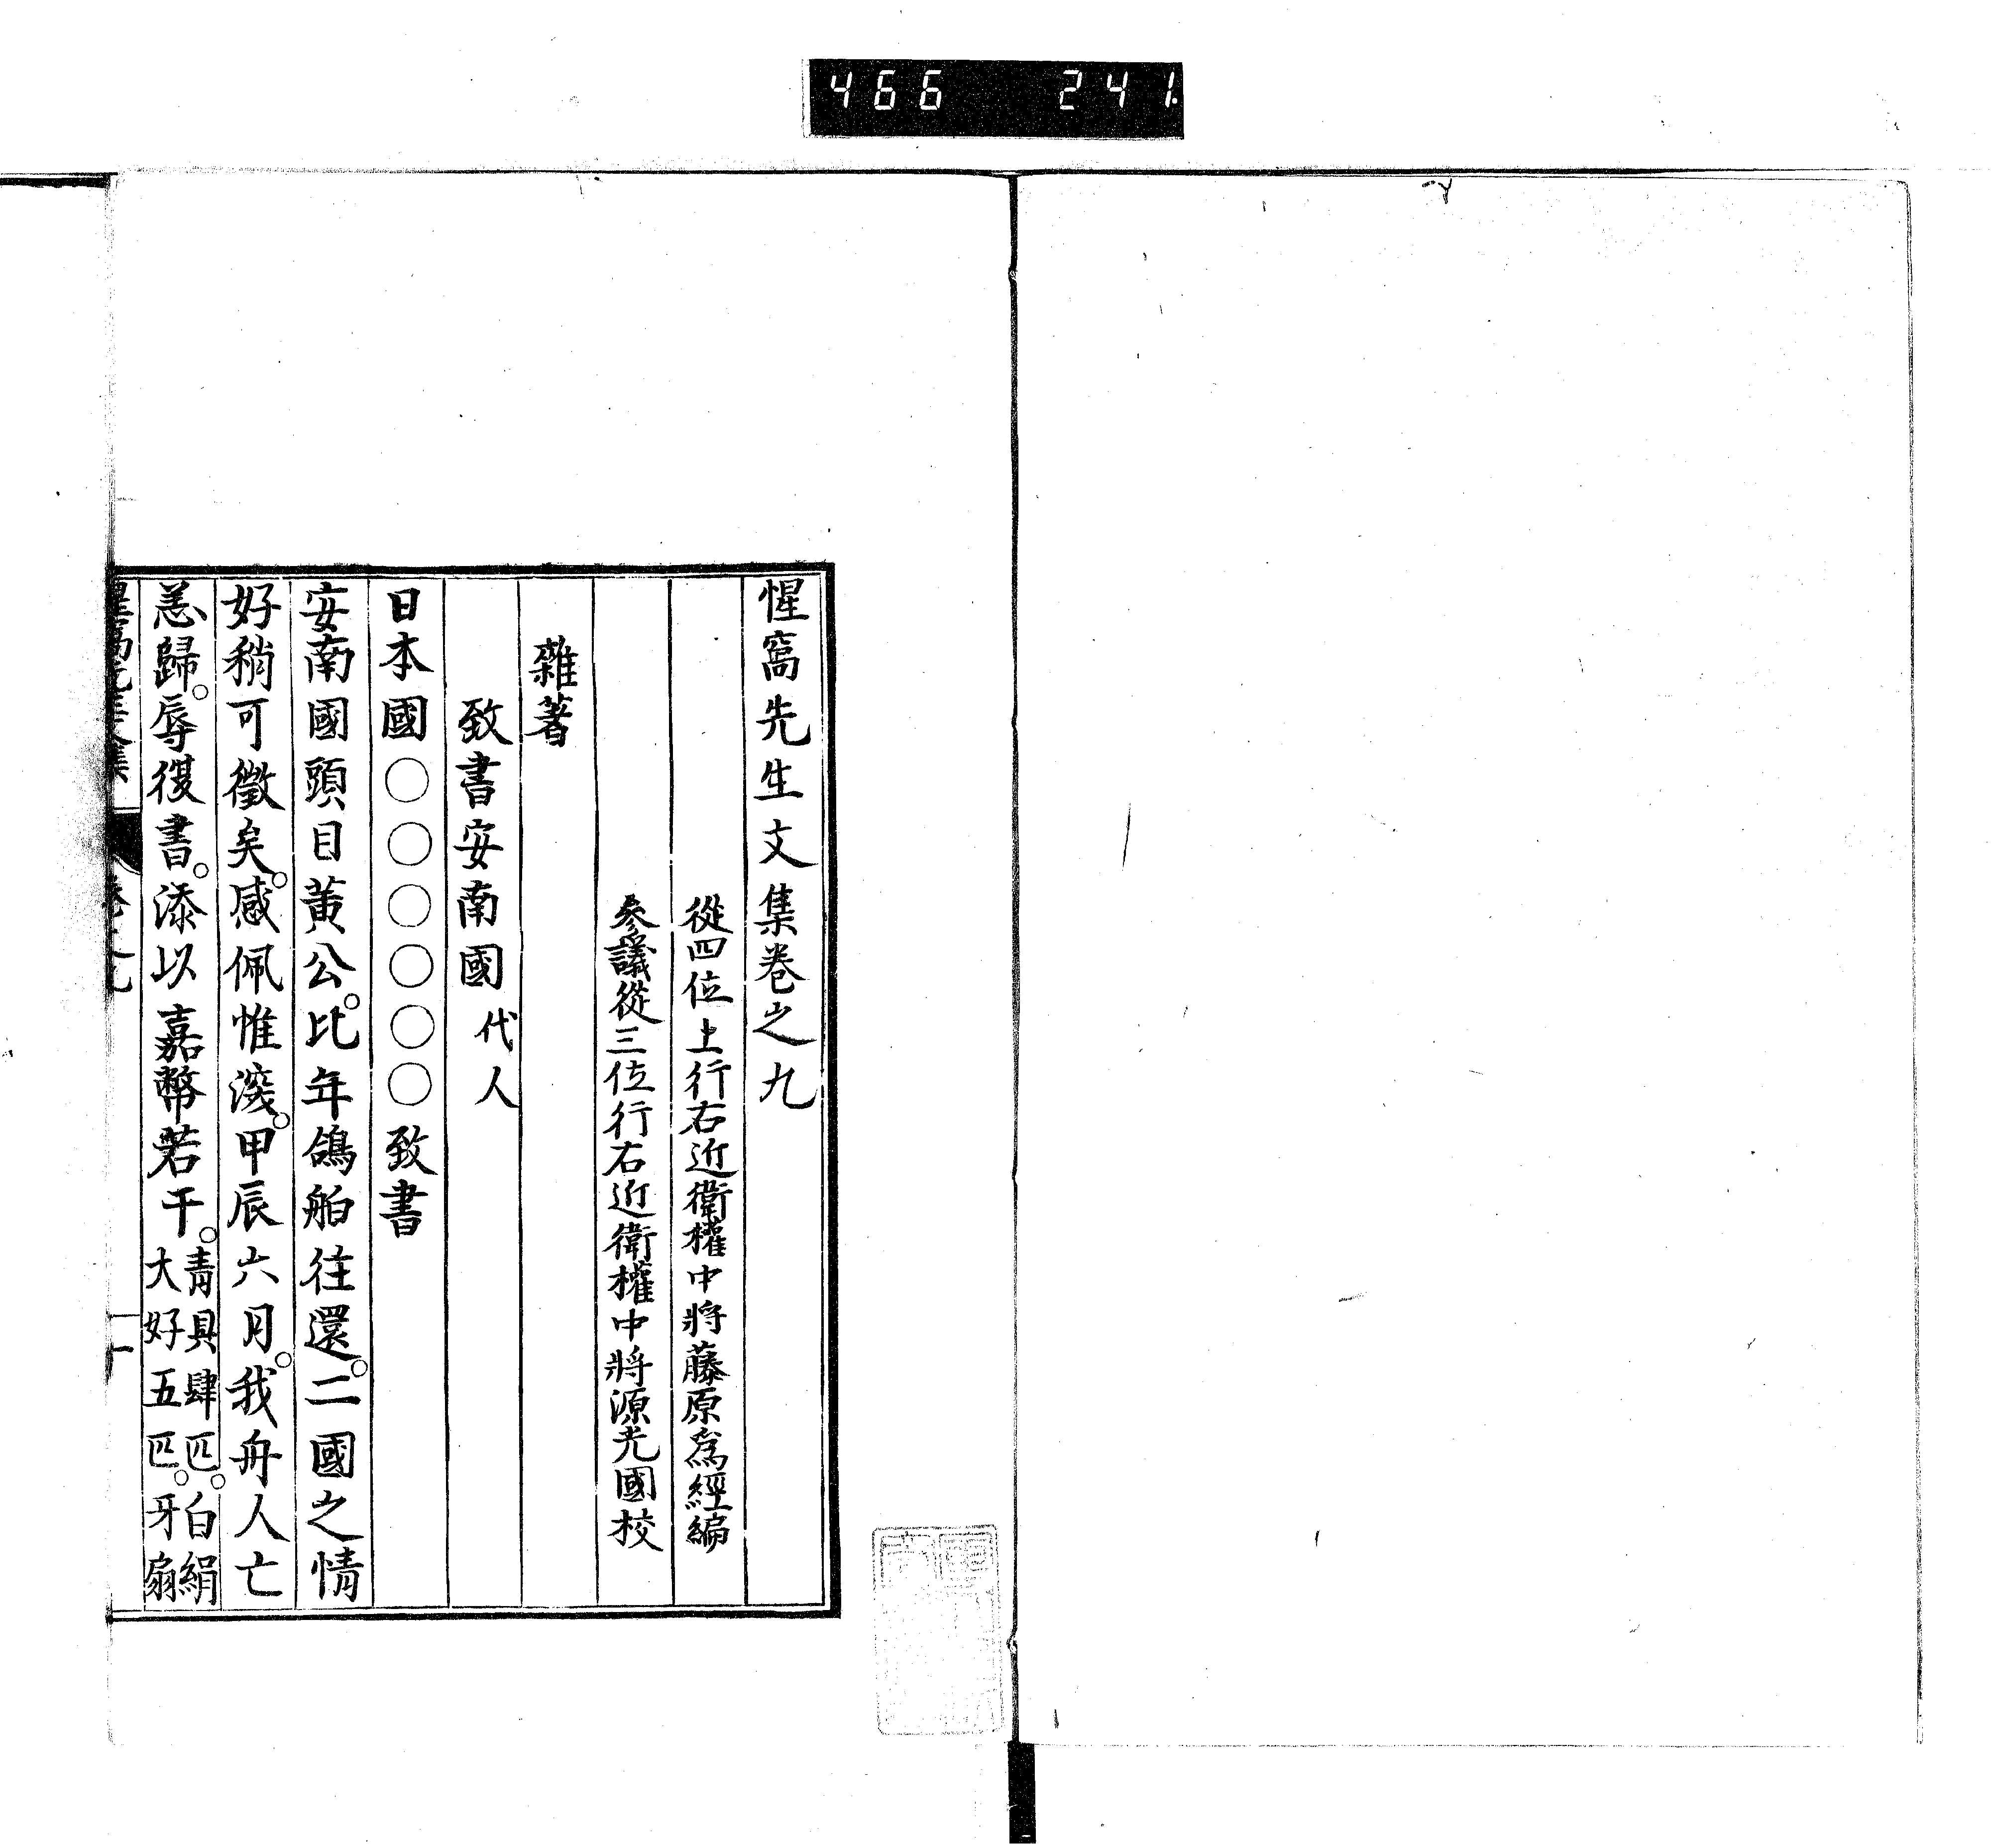 466 241
惺窩先生文集卷之九
從四位上行右近衛權中將藤原爲經編
參議從三位行右近衛權中將源光國校
雜著
致書安南國 代人
日本國○○○○○○致書
安南國頭目黃公。比年鴿舶往還。二國之情
好稍可徵矣。感佩惟深。甲辰六月。我舟人亡
恙歸。辱復書。添以嘉幣若干。青具肆匹。白絹
大好五匹。牙扇